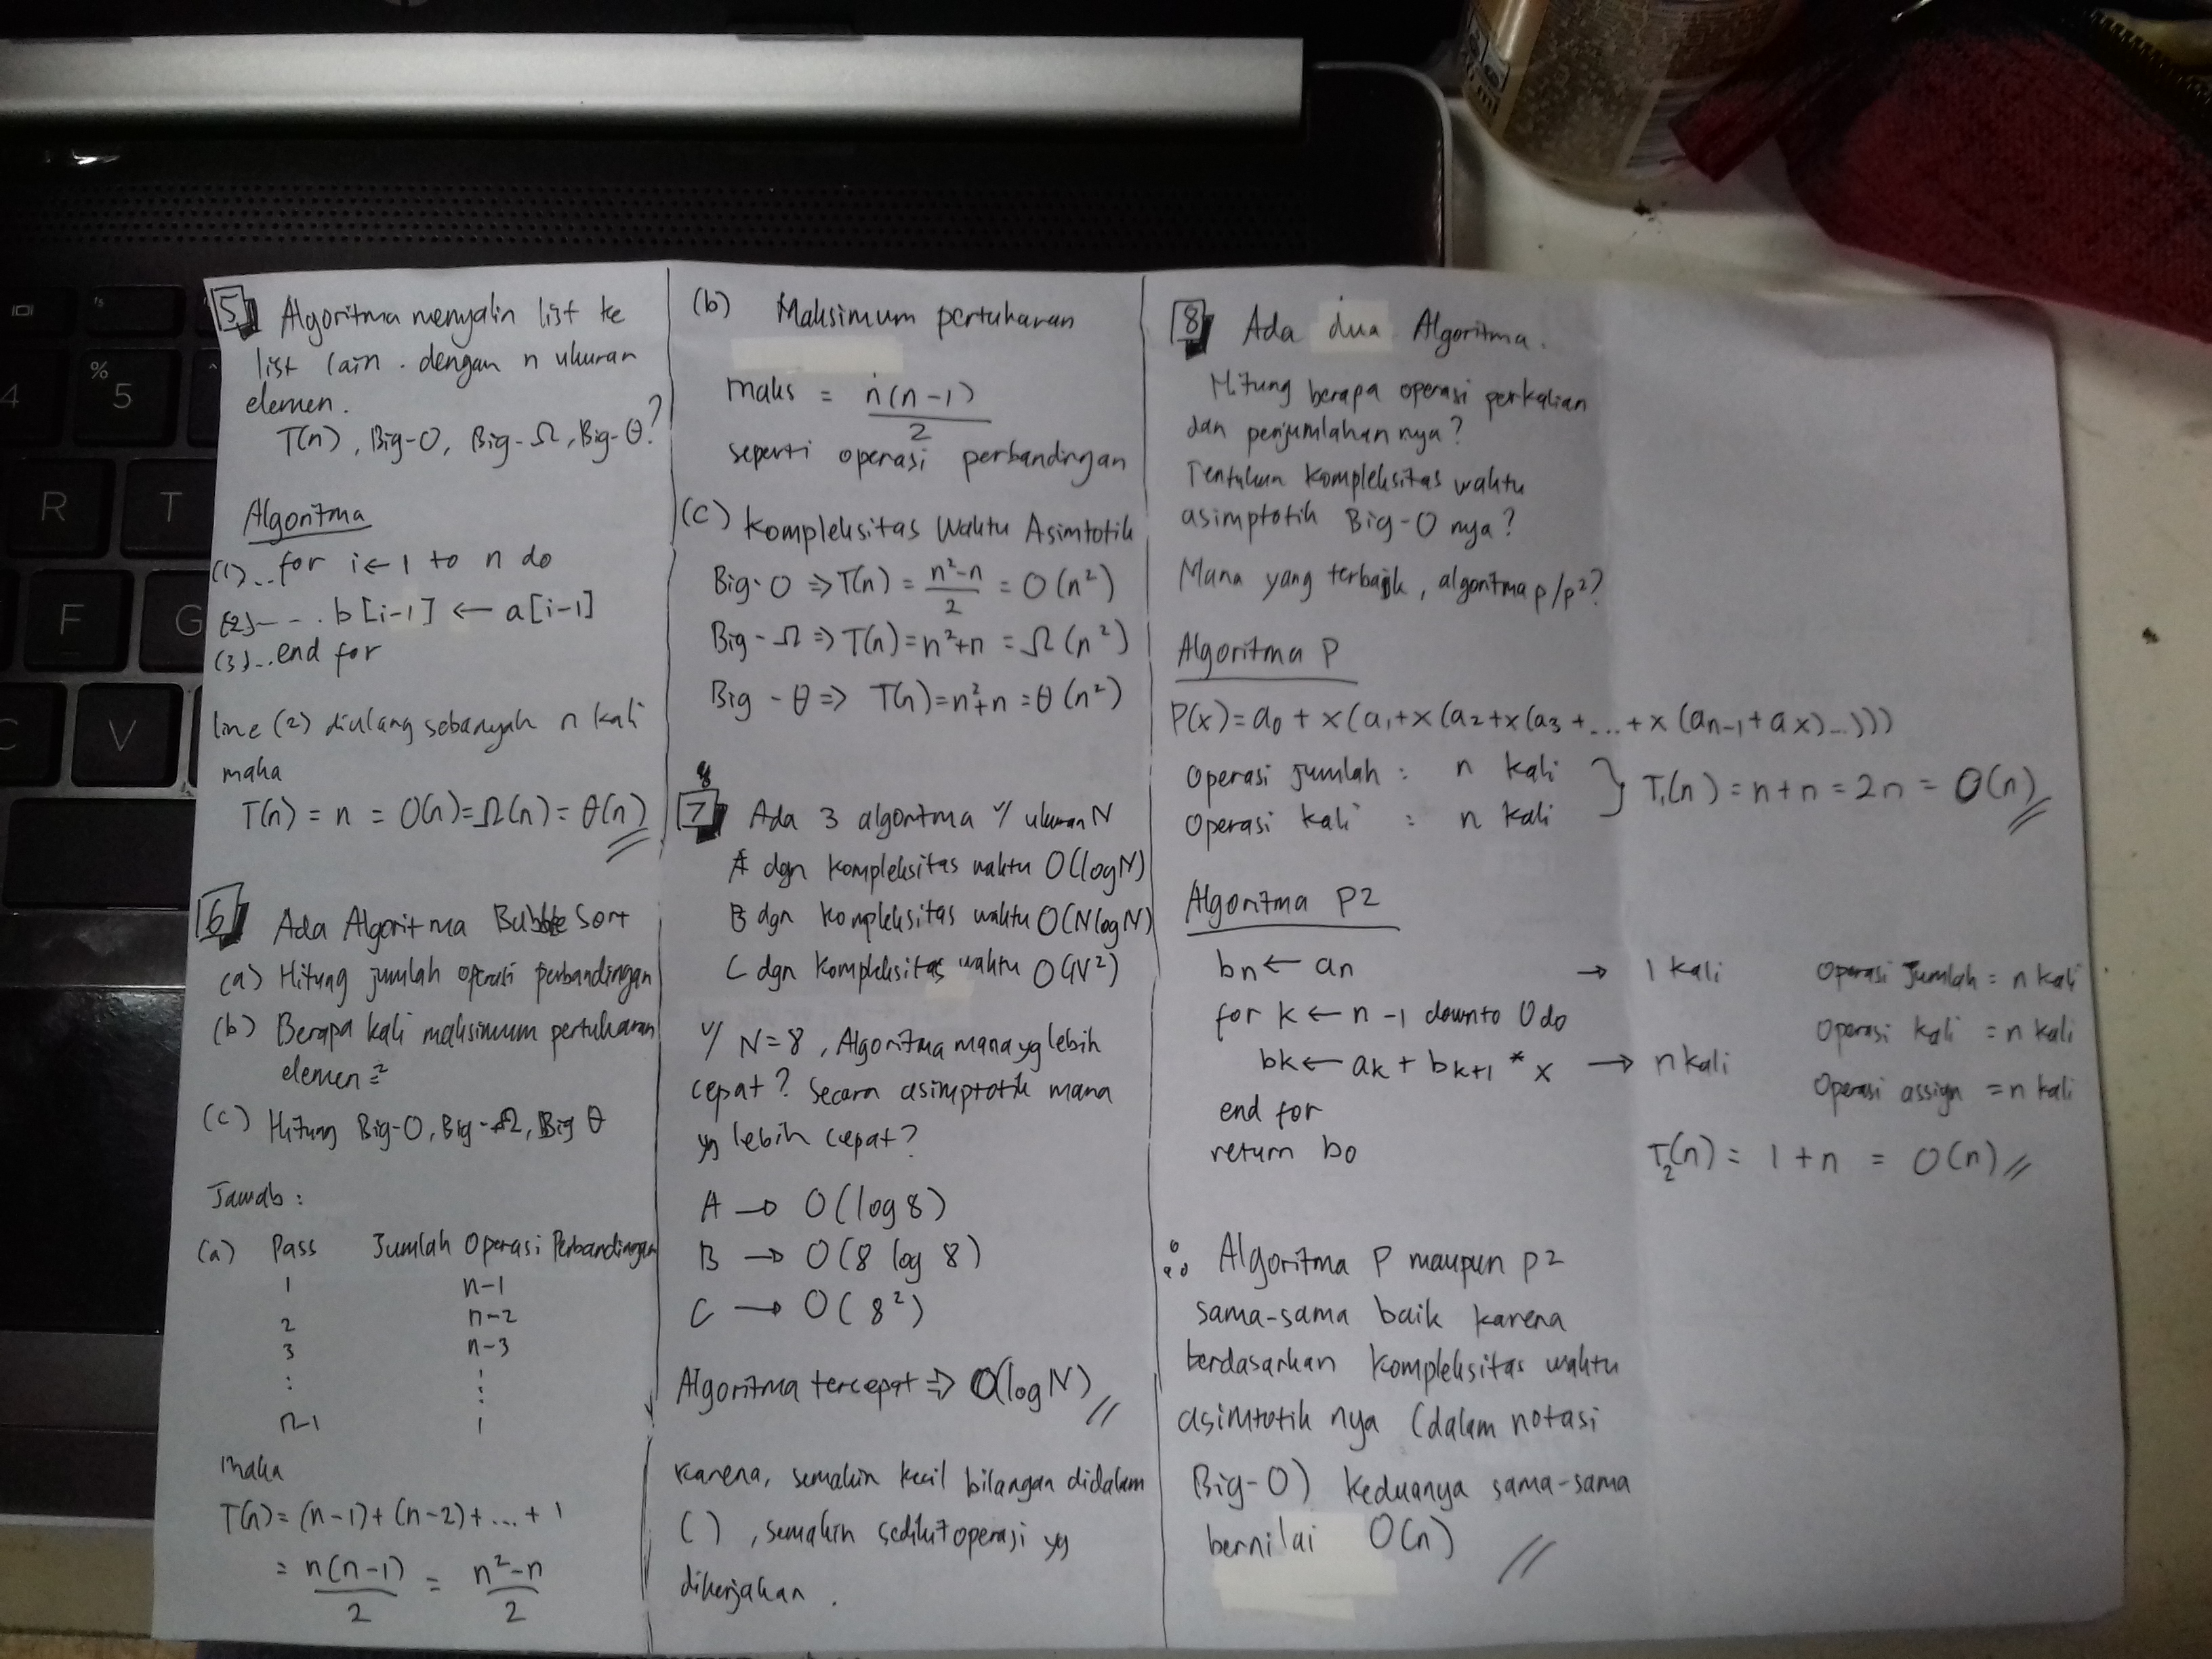 5 Algoritma menyalin list ke
list lain. dengan n ukuran
elemen.
T(n), Big-O, Big-Ω, Big-θ?
Algoritma
(1)...for i ← 1 to n do
(2)--- . b[i-1] ← a[i-1]
(3)...end for
line (2) diulang sebanyak n kali
maka
T(n) = n = O(n)=Ω(n)= θ(n) //
6 Ada Algoritma Bubble Sort
(a) Hitung jumlah operasi perbandingan
(b) Berapa kali maksimum pertukaran
elemen?
(c) Hitung Big-O, Big-Ω, Big θ
Jawab :
(a) Pass Jumlah Operasi Perbandingan
1 n-1
2 n-2
3 n-3
⋮ ⋮
n-1 1
maka
T(n) = (n-1)+(n-2)+...+1
= n(n-1)/2 = n²-n/2
(b) Maksimum pertukaran
maks = n(n-1)/2
seperti operasi perbandingan
(c) Kompleksitas Waktu Asimtotik
Big-O ⇒ T(n) = n²-n/2 = O(n²)
Big-Ω ⇒ T(n) = n²+n = Ω(n²)
Big-θ ⇒ T(n) = n²+n = θ(n²)
7 Ada 3 algoritma u/ ukuran N
A dgn kompleksitas waktu O(log N)
B dgn kompleksitas waktu O(N log N)
C dgn kompleksitas waktu O(N²)
u/ N=8, Algoritma mana yg lebih
cepat? Secara asimptotik mana
yg lebih cepat?
A → O(log 8)
B → O(8 log 8)
C → O(8²)
Algoritma tercepat ⇒ O(log N) //
karena, semakin kecil bilangan didalam
( ), semakin sedikit operasi yg
dikerjakan.
8 Ada dua Algoritma.
Hitung berapa operasi perkalian
dan penjumlahan nya?
Tentukan kompleksitas waktu
asimptotik Big-O nya?
Mana yang terbaik, algoritma p/p²?
Algoritma P
P(x) = a0 + x(a1+x(a2+x(a3+...+x(an-1+ax)...)))
Operasi jumlah : n kali
Operasi kali : n kali
} T1(n) = n+n = 2n = O(n) //
Algoritma P2
bn ← an → 1 kali
for k ← n-1 downto 0 do
bk ← ak + bk+1 * x → n kali
end for
return b0
Operasi Jumlah = n kali
Operasi kali = n kali
Operasi assign = n kali
T2(n) = 1+n = O(n) //
∴ Algoritma P maupun P2
sama-sama baik karena
berdasarkan kompleksitas waktu
asimtotik nya (dalam notasi
Big-O) keduanya sama-sama
bernilai O(n) //
4
%
5
R
T
F
G
C
V